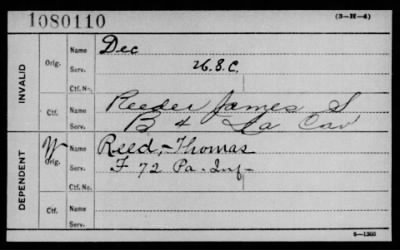 1080110
(3-H-4)
INVALID
Orig. Name Dec
Serv. U.S.C.
Ctf. N.,
Ctf. Name Reeder James S
Serv. B 4 Ia Cav
DEPENDENT
W Orig. Name Reed, Thomas
Serv. F 72 Pa. Inf
Ctf. No.
Ctf. Name
Serv.